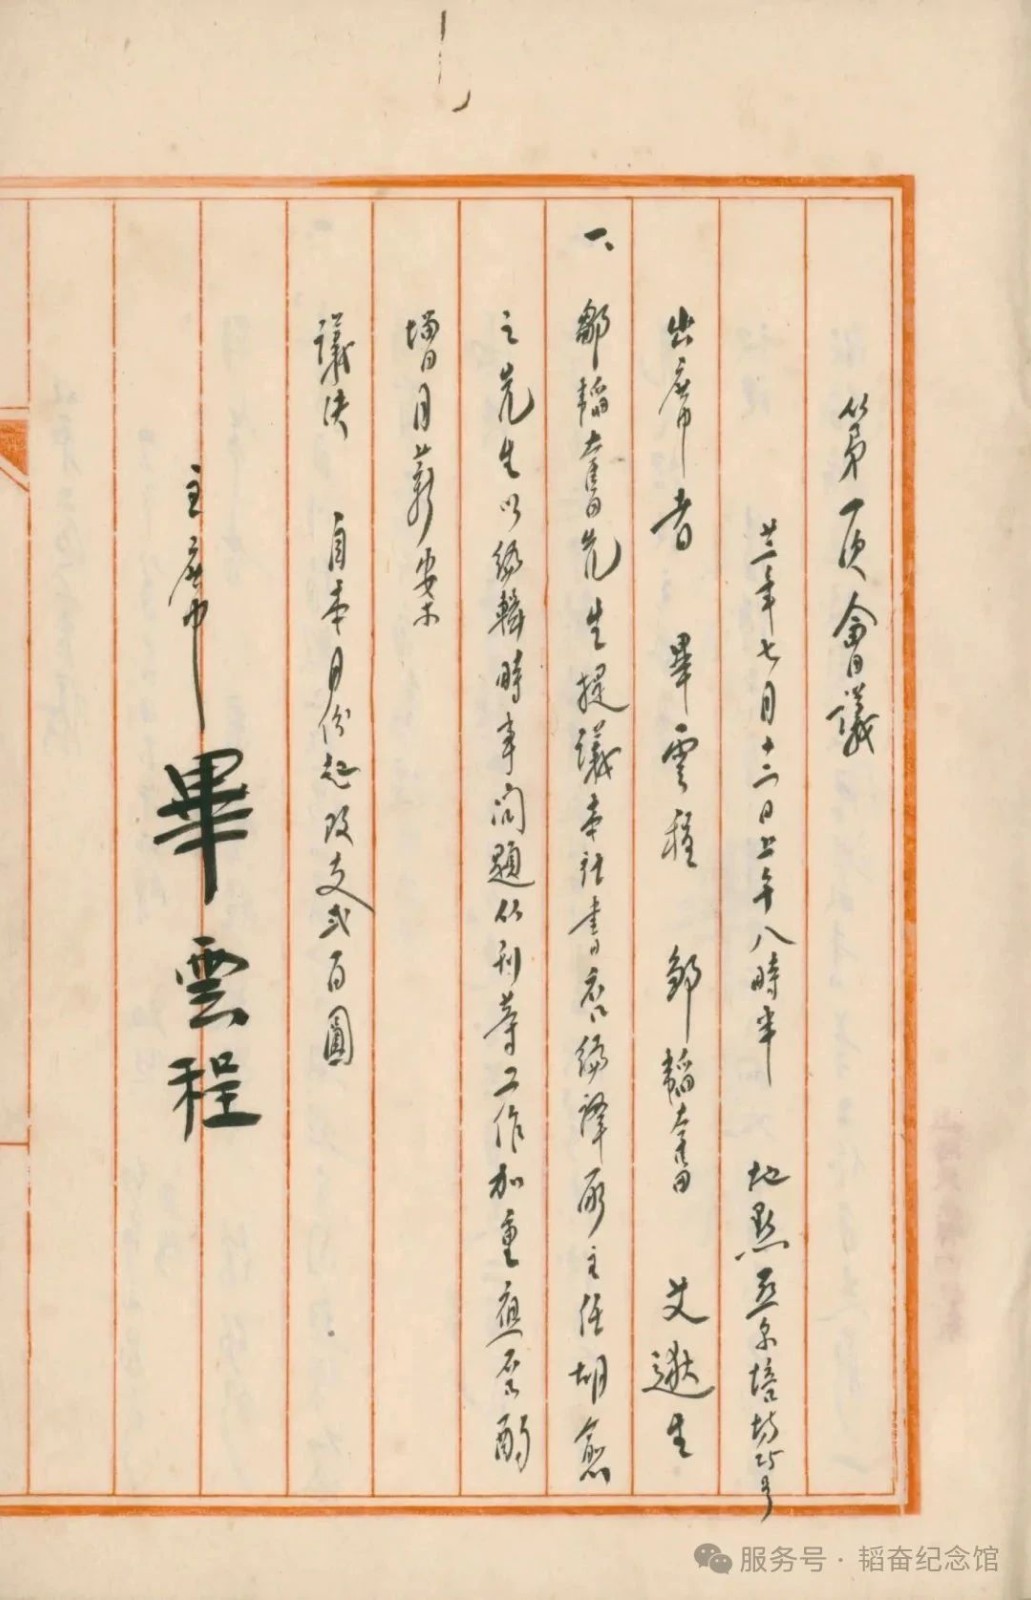 第一次會議
廿三年七月十二日上午八時半 地點 亞爾培坊25号
出席者 畢雲程 鄒韜奮 艾遜生
一、鄒韜奮先生提議本社書店編譯所主任胡愈
之先生以編輯時事問題叢刊等工作加重應否酌
增月薪案
議決 自本月份起改支弍百圓
主席 畢雲程
服务号·韬奋纪念馆